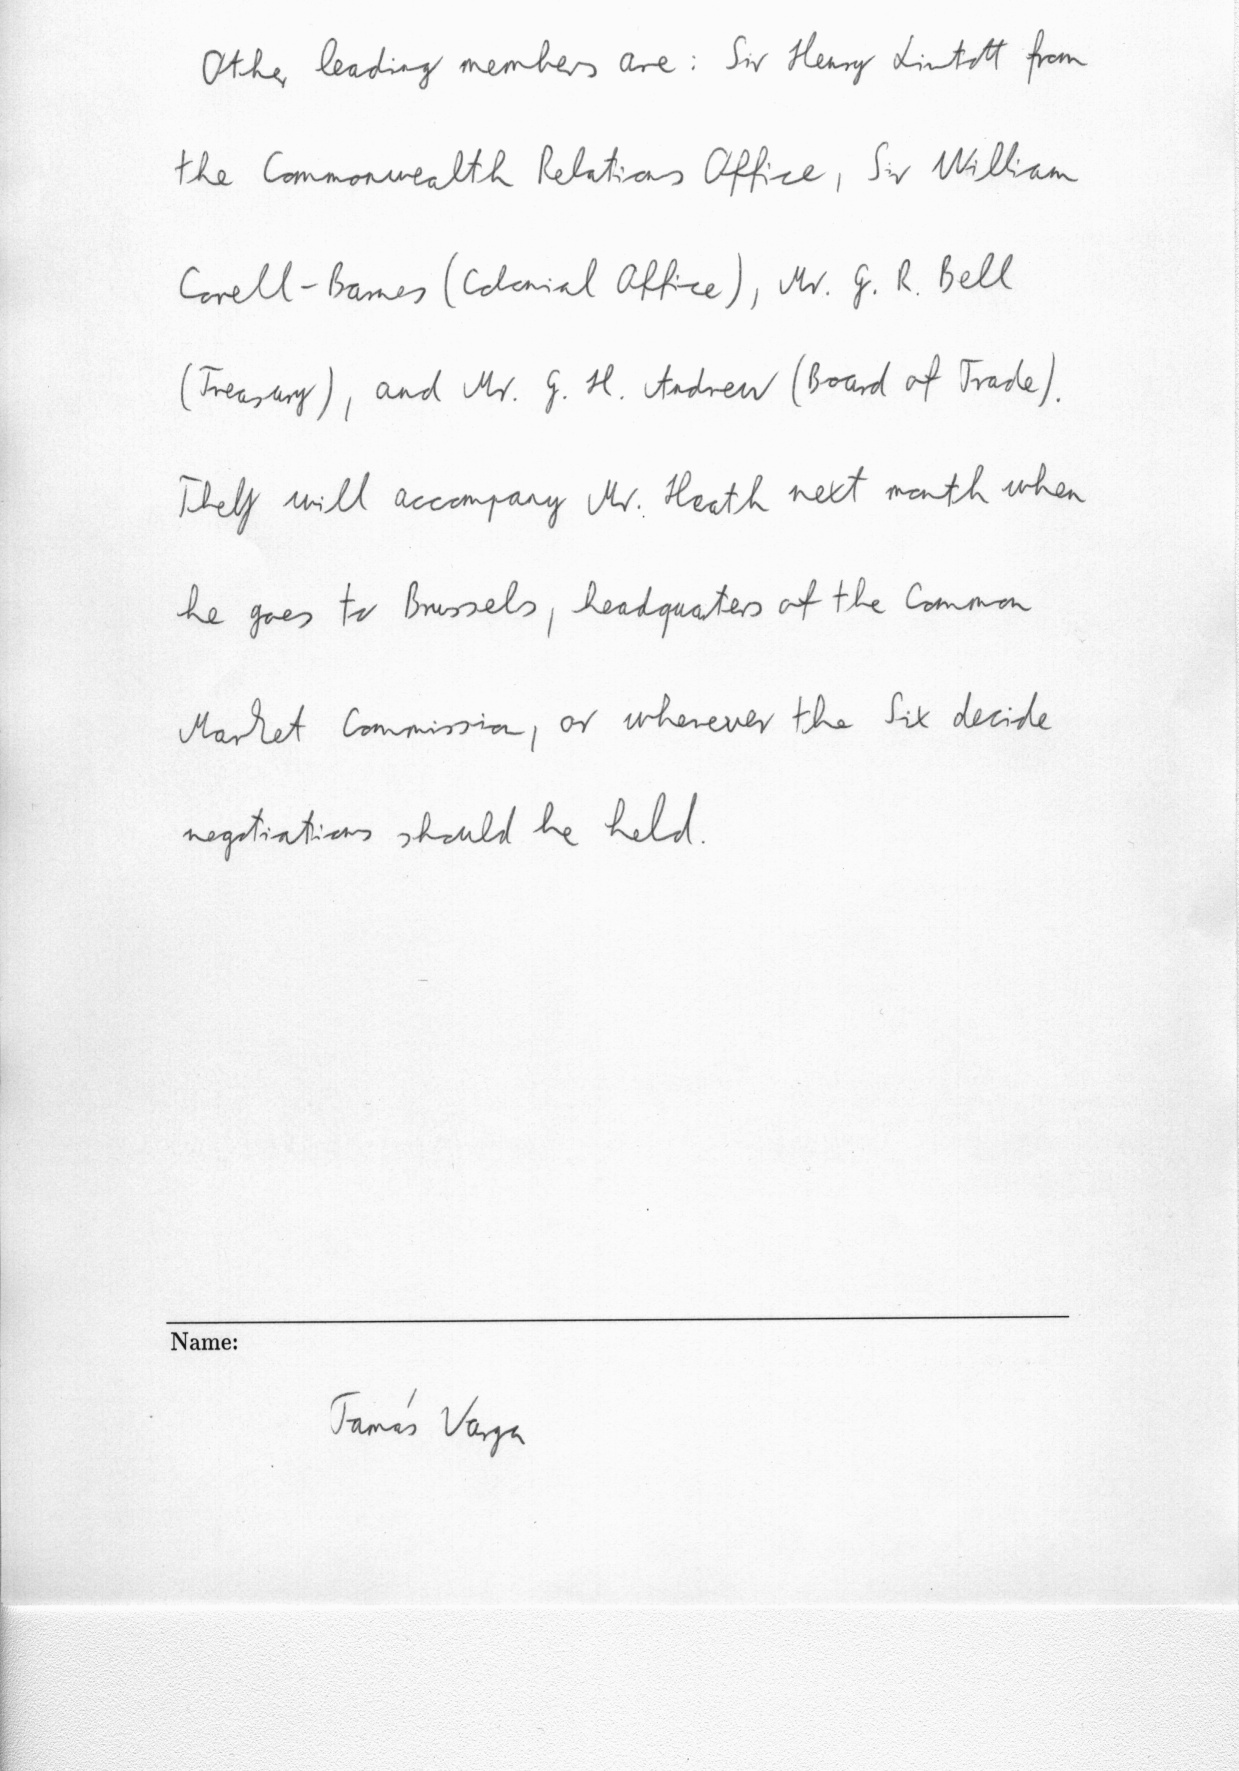 Other leading members are: Sir Henry Lintott from
the Commonwealth Relations Office, Sir William
Gorell-Barnes (Colonial Office), Mr. G. R. Bell
(Treasury), and Mr. G. H. Andrew (Board of Trade).
They will accompany Mr. Heath next month when
he goes to Brussels, headquarters of the Common
Market Commission, or wherever the Six decide
negotiations should be held.
Name:
Tamás Varga